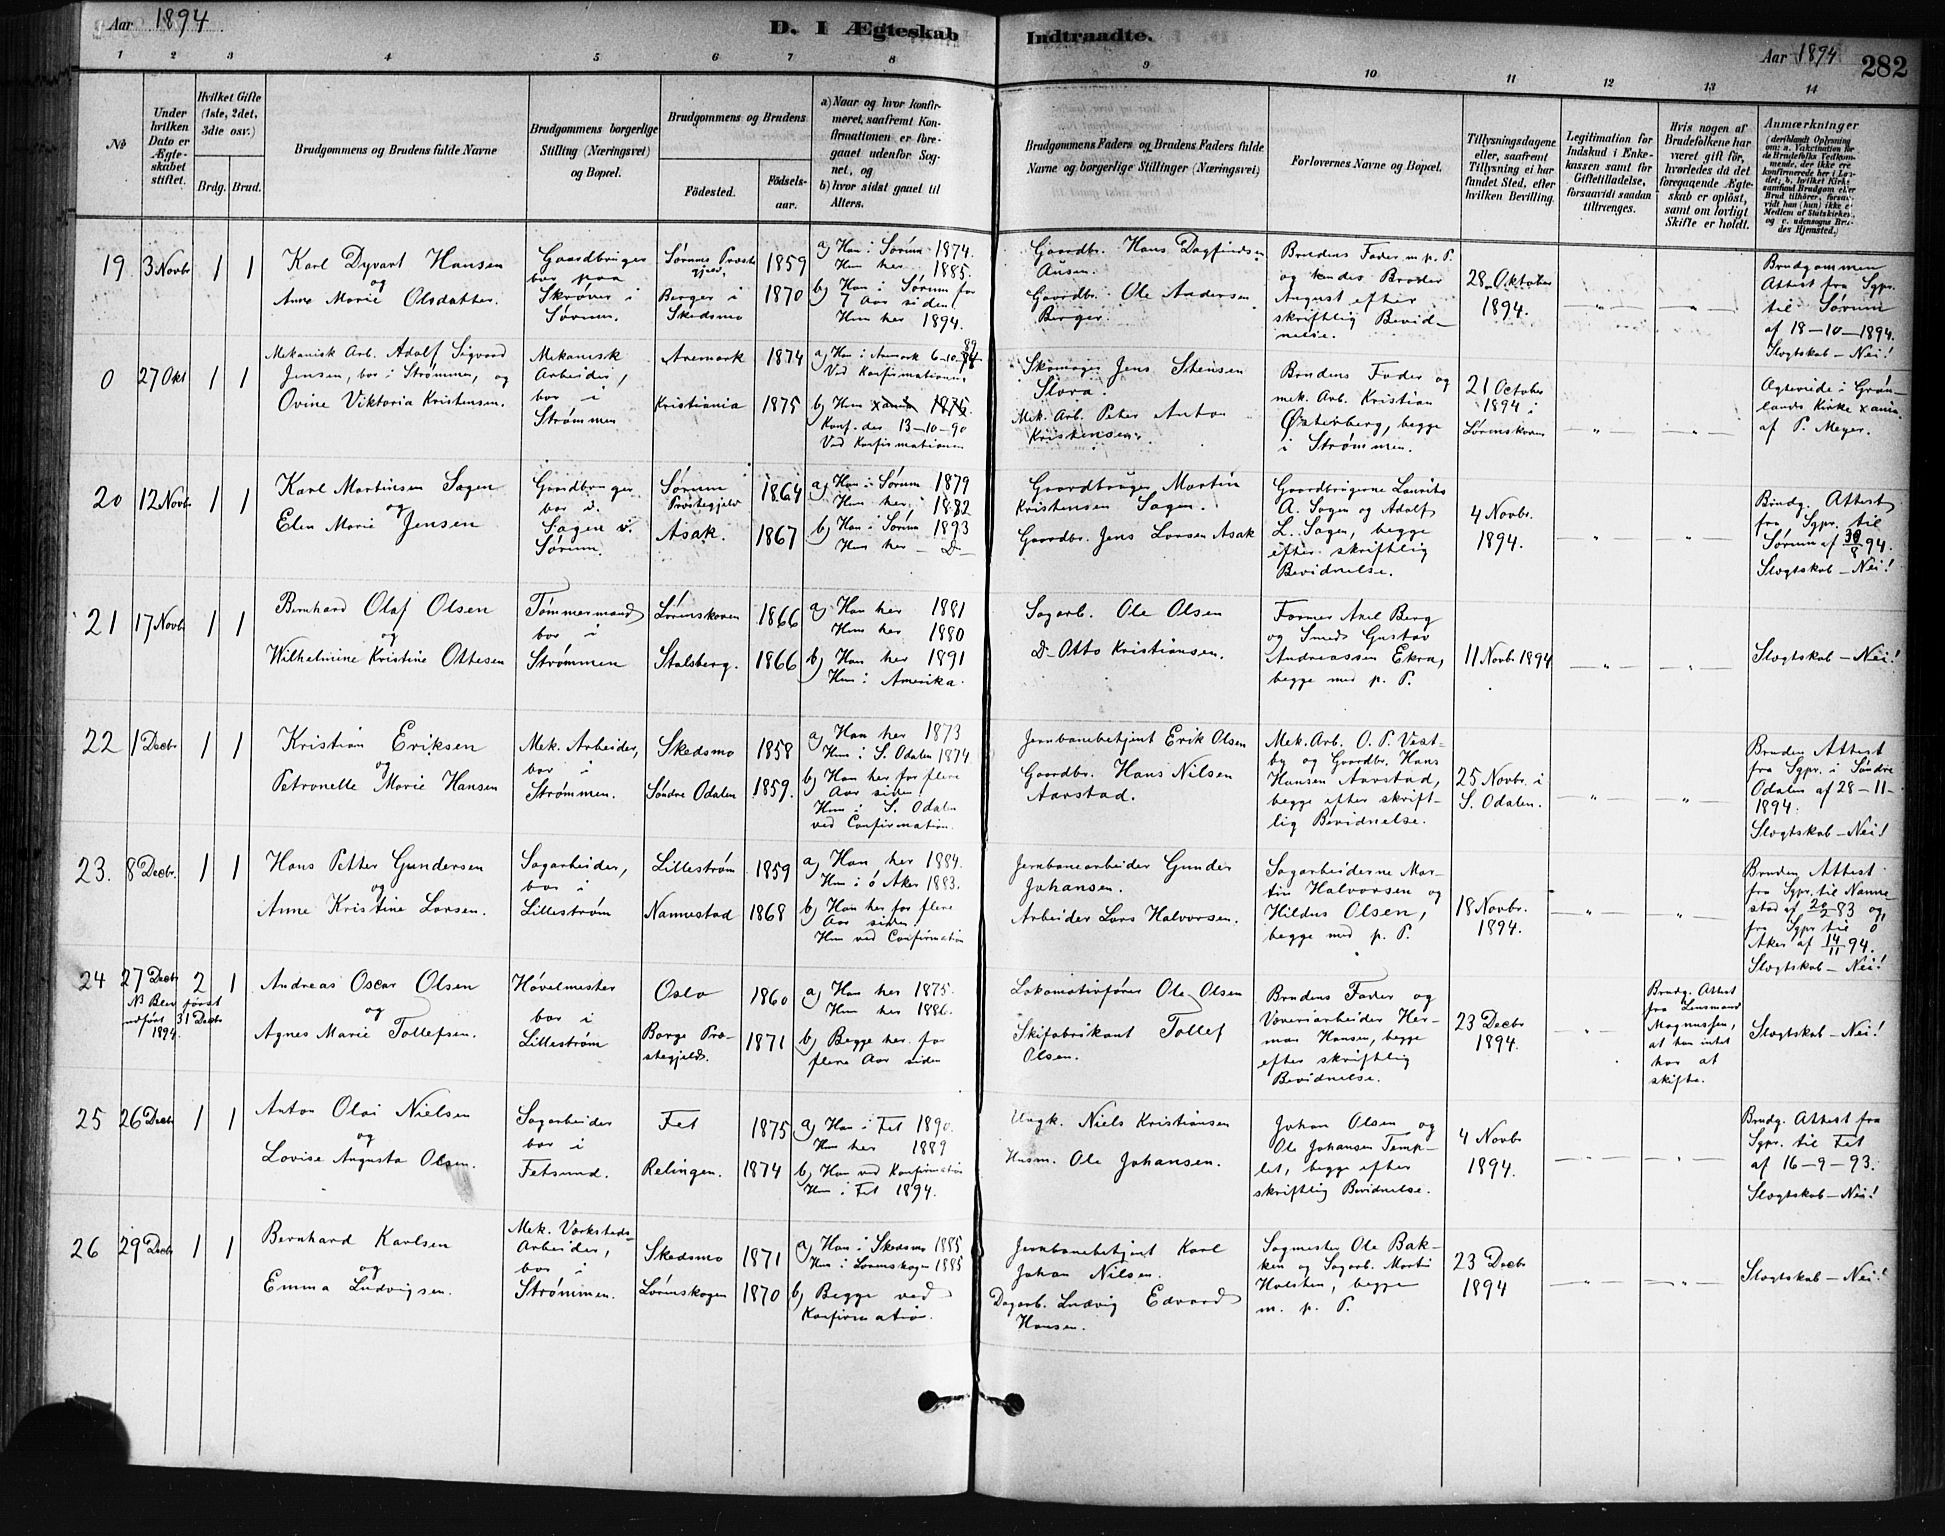 Aar 1894
D. I Ægteskab Indtraadte.
Aar 1894 282
1 2 3 4 5 6 7 8 9 10 11 12 13 14
No
Under hvilken Dato er Ægteskabet stiftet.
Hvilket Gifte (1ste, 2det, 3die osv.)
Brdg. Brud.
Brudgommens og Brudens fulde Navne
Brudgommens borgerlige Stilling (Næringsvei) og Bopæl.
Brudgommens og Brudens
Fødested. Fødselsaar.
a) Naar og hvor konfirmeret, saafremt Konfirmationen er foregaaet udenfor Sognet, og
b) hvor sidst gaaet til Alters.
Brudgommens Faders og Brudens Faders fulde Navne og borgerlige Stillinger (Næringsvei)
Forlovernes Navne og Bopæl.
Tillysningsdagene eller, saafremt Tillysning ei har fundet Sted, efter hvilken Bevilling.
Legitimation for Indskud i Enkekassen samt for Giftetilladelse, forsaavidt saadan tiltrænges.
Hvis nogen af Brudefolkene har været gift før, hvorledes da det foregaaende Ægteskab er opløst, samt om lovligt Skifte er holdt.
Anmærkninger
19 3 Novbr 1 1
Karl Dyvart Hansen
og
Anne Marie Olsdatter.
Gaardbruger
bor paa
Skrøver i
Sørum.
Sørums Præstegjeld, 1859
Berger i Skedsmo 1870
a) Han i Sørum 1874.
Hun her 1885.
b) Han i Sørum for
7 Aar siden
Hun her 1894.
Gaardbr. Hans Dagfindsen
Gaardbr. Ole Andersen
Berger.
Brudens Fader m. p. P.
og hendes Broder
August efter
skriftlig Bevidnelse.
28 Oktober
1894.
Brudgommen
Attest fra Sgpr.
til Sørum
af 18-10-1894.
Slægtskab - Nei!
0 27 Okt 1 1
Mekanisk Arb. Adolf Sigvard
Jensen, bor i Strømmen, og
Ovine Viktoria Kristensen.
Mekanisk
Arbeider,
bor i
Strømmen
Aremark 1874
Kristiania 1875
a) Han i Aremark 6-10-89
Ved Konfirmationen
b) Hun xania 1875.
Konf. der 13-10-90
Ved Konfirmationen
Skomager Jens Stensen
Slora.
Mek. Arb. Peter Anton
Kristensen.
Brudens Fader og
mek. Arb. Kristian
Østerberg, begge
i Strømmen.
21 October
1894 i
Lørenskoven
Ægteviede i Grønlands Kirke xania
af P. Meyer.
20 12 Novbr 1 1
Karl Martinsen Sagen
og
Elen Marie Jensen
Gaardbruger
bor i
Sagen v.
Sørum.
Sørum Præstegjeld 1864
Asak. 1867
a) Han i Sørum 1879
Hun her 1882
b) Han i Sørum 1893
Hun her - D -
Gaardbruger Martin
Kristensen Sagen.
Gaardbr. Jens Larsen Asak
Gaardbrugerne Laurits
A. Sagen og Adolf
L. Sagen, begge
efter skriftlig
Bevidnelse.
4 Novbr.
1894.
Brudg. Attest
fra Sgpr. til
Sørum af 30/8 94.
Slægtskab - Nei!
21 17 Novbr 1 1
Bernhard Olaf Olsen
og
Wilhelmine Kristine Ottesen
Tømmermand
bor i
Strømmen
Lørenskoven 1866
Stalsberg. 1866
a) Han her 1881
Hun her 1880
b) Han her 1891
Hun i Amerika.
Sagarb. Ole Olsen
D- Otto Kristiansen.
Former Axel Berg
og Smed Gustav
Andreassen Ekra,
begge med p. P.
11 Novbr 1894
Slægtskab - Nei!
22 1 Decbr 1 1
Kristian Eriksen
og
Petronelle Marie Hansen
Mek. Arbeider,
bor i
Strømmen.
Skedsmo 1858
Søndre Odalen 1859.
a) Han her 1873
Hun i S. Odalen 1874
b) Han her for flere
Aar siden
Hun i S. Odalen
ved Confirmation.
Jernbanebetjent Erik Olsen
Gaardbr. Hans Nilsen
Aarstad.
Mek. Arb. O. P. Vestby og Gaardbr. Hans
Hansen Aarstad,
begge efter skriftlig Bevidnelse.
25 Novbr. i
S. Odalen.
Bruden Attest
fra Sgpr. i Søndre
Odalen af 28-11-1894.
Slægtskab - Nei!
23. 8 Decbr. 1 1
Hans Petter Gundersen
og
Anne Kristine Larsen.
Sagarbeider,
bor i
Lillestrøm
Lillestrøm 1859
Nannestad 1868
a) Han her 1884.
Hun i Ø Aker 1883.
b) Han her for flere
Aar siden
Hun ved Confirmation
Jernbanearbeider Gunder
Johansen.
Arbeider Lars Halvorsen.
Sagarbeiderne Martin Halvorsen og
Hildus Olsen,
begge med p. P.
18 Novbr.
1894.
Bruden Attest
fra Sgpr. til Nannestad af 20/2 83 og,
fra Sgpr til Ø
Aker af 14/11 94.
Slægtskab - Nei!
24 27 Decbr 2 1
NB Blev først
indført 31 Decbr
1894.
Andreas Oscar Olsen
og
Agnes Marie Tollefsen.
Høvelmester
bor i
Lillestrøm
Oslo 1860
Borge Præstegjeld. 1871
a) Han her 1875.
Hun her 1886.
b) Begge her for
flere Aar siden
Lokomotivfører Ole Olsen
Skifabrikant Tollef
Olsen.
Brudens Fader og
Væveriarbeider Herman Hansen, begge
efter skriftlig
Bevidnelse.
23 Decbr
1894.
Brudg. Attest
fra Lensmand
Magnussen,
at han intet
har at
skifte.
Slægtskab - Nei!
25 26 Decbr 1 1
Anton Olai Nielsen
og
Lovise Augusta Olsen.
Sagarbeider
bor i
Fetsund.
Fet 1875
Relingen. 1874
a) Han i Fet 1890.
Hun her 1889
b) Han ved Konfirmation
Hun i Fet 1894.
Ungk. Niels Kristiansen
Husm. Ole Johansen.
Johan Olsen og
Ole Johansen Templet, begge efter
skriftlig Bevidnelse.
4 Novbr
1894.
Brudg. Attest fra
Sgpr. til Fet
af 16-9-93.
Slægtskab - Nei!
26 29 Decbr 1 1
Bernhard Karlsen
og
Emma Ludvigsen.
Mek. Værksteds-
Arbeider,
bor i
Strømmen.
Skedsmo 1871
Lørenskogen 1870
a) Han i Skedsmo 1885
Hun i Lørenskogen 1885
b) Begge ved
Konfirmation.
Jernbanebetjent Karl
Johan Nilsen.
Dagarb. Ludvig Edvard
Hansen.
Sagmester Ole Bakken og Sagarb. Martin
Holsten, begge
m. p. P.
23 Decbr
1894
Slægtskab - Nei!